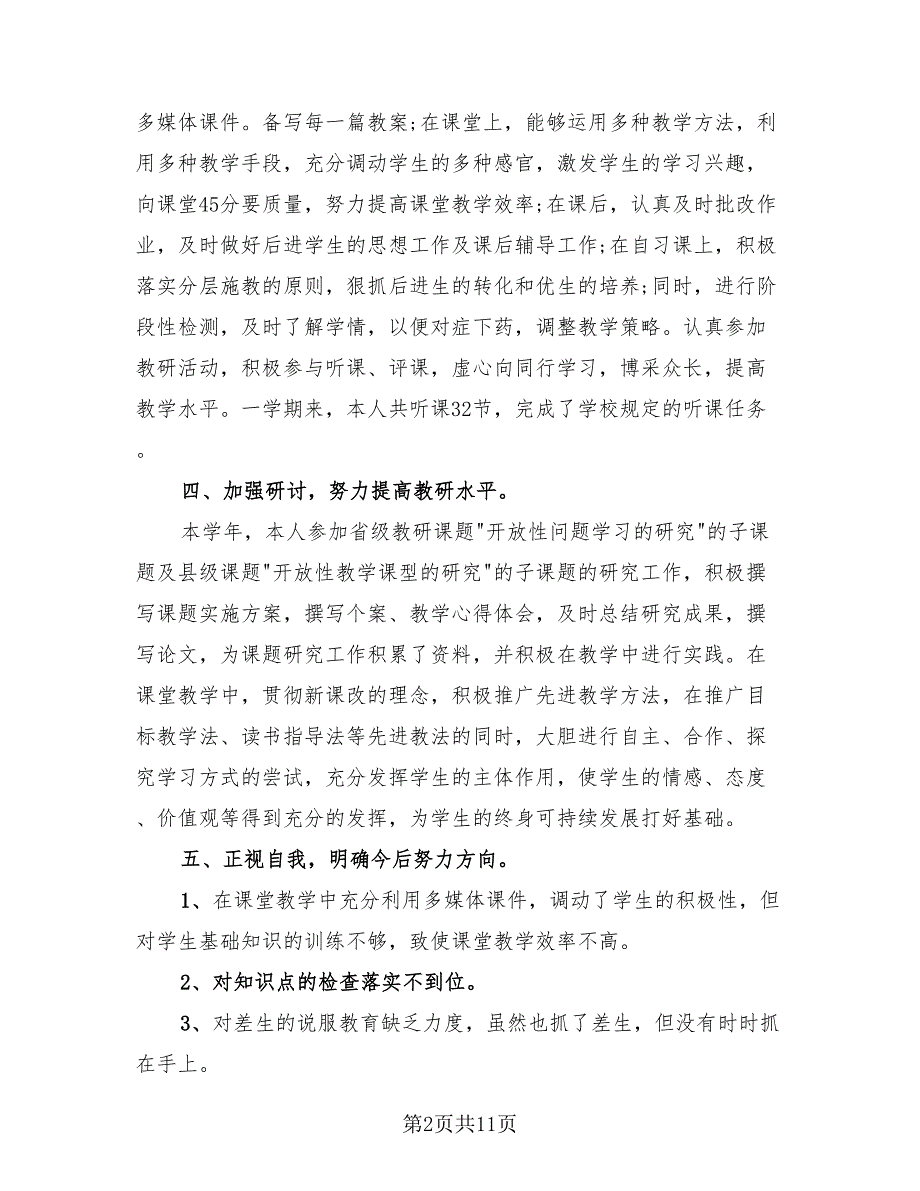 多媒体课件。备写每一篇教案;在课堂上，能够运用多种教学方法，利
用多种教学手段，充分调动学生的多种感官，激发学生的学习兴趣，
向课堂45分要质量，努力提高课堂教学效率;在课后，认真及时批改作
业，及时做好后进学生的思想工作及课后辅导工作;在自习课上，积极
落实分层施教的原则，狠抓后进生的转化和优生的培养;同时，进行阶
段性检测，及时了解学情，以便对症下药，调整教学策略。认真参加
教研活动，积极参与听课、评课，虚心向同行学习，博采众长，提高
教学水平。一学期来，本人共听课32节，完成了学校规定的听课任务
。
四、加强研讨，努力提高教研水平。
本学年，本人参加省级教研课题"开放性问题学习的研究"的子课
题及县级课题"开放性教学课型的研究"的子课题的研究工作，积极撰
写课题实施方案，撰写个案、教学心得体会，及时总结研究成果，撰
写论文，为课题研究工作积累了资料，并积极在教学中进行实践。在
课堂教学中，贯彻新课改的理念，积极推广先进教学方法，在推广目
标教学法、读书指导法等先进教法的同时，大胆进行自主、合作、探
究学习方式的尝试，充分发挥学生的主体作用，使学生的情感、态度
、价值观等得到充分的发挥，为学生的终身可持续发展打好基础。
五、正视自我，明确今后努力方向。
1、在课堂教学中充分利用多媒体课件，调动了学生的积极性，但
对学生基础知识的训练不够，致使课堂教学效率不高。
2、对知识点的检查落实不到位。
3、对差生的说服教育缺乏力度，虽然也抓了差生，但没有时时抓
在手上。
第2页共11页